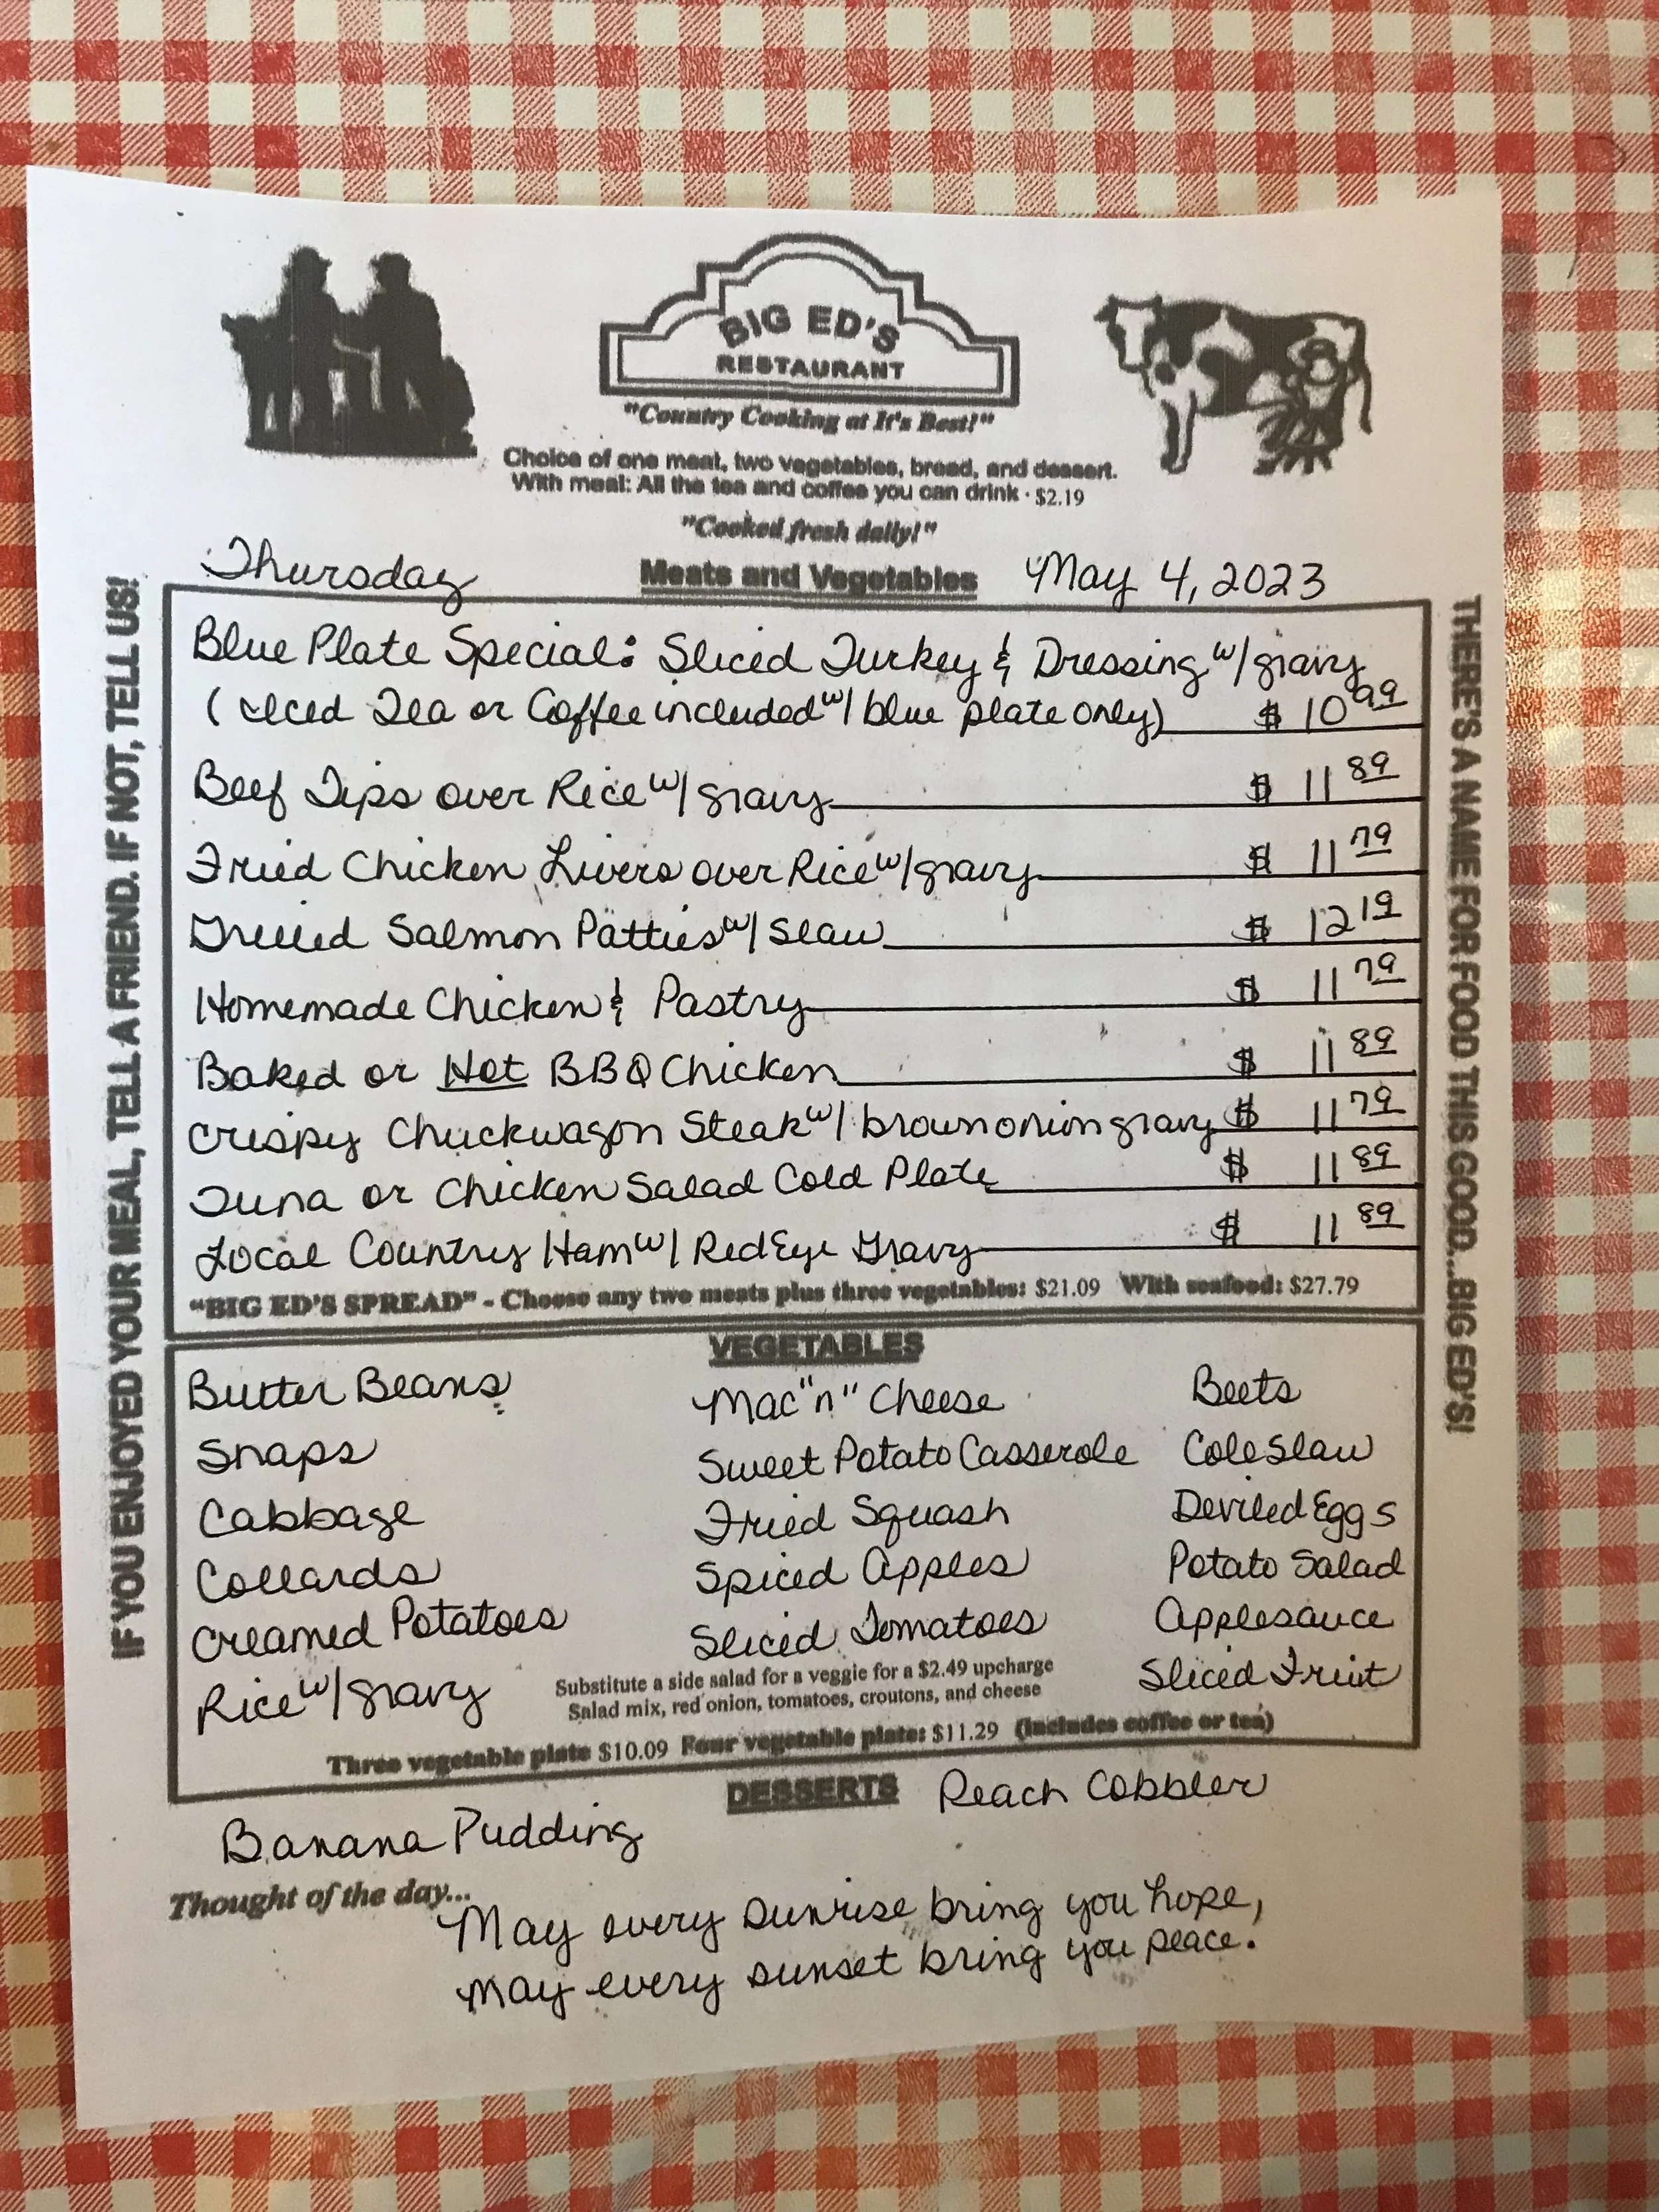 BIG ED'S
RESTAURANT
"Country Cooking at It's Best!"
Choice of one meat, two vegetables, bread, and dessert.
With meal: All the tea and coffee you can drink · $2.19
"Cooked fresh daily!"
Thursday Meats and Vegetables May 4, 2023
IF YOU ENJOYED YOUR MEAL, TELL A FRIEND. IF NOT, TELL US!
Blue Plate Special: Sliced Turkey & Dressing w/ gravy
(Iced Tea or Coffee included w/ blue plate only) $ 10 99
Beef Tips over Rice w/ gravy $ 11 89
Fried Chicken Livers over Rice w/ gravy $ 11 79
Grilled Salmon Patties w/ Slaw $ 12 19
Homemade Chicken & Pastry $ 11 79
Baked or Hot BBQ Chicken $ 11 89
Crispy Chuckwagon Steak w/ brown onion gravy $ 11 79
Tuna or Chicken Salad Cold Plate $ 11 89
Local Country Ham w/ RedEye Gravy $ 11 89
"BIG ED'S SPREAD" - Choose any two meats plus three vegetables: $21.09 With seafood: $27.79
THERE'S A NAME FOR FOOD THIS GOOD...BIG ED'S!
VEGETABLES
Butter Beans Mac "n" Cheese Beets
Snaps Sweet Potato Casserole Cole Slaw
Cabbage Fried Squash Deviled Eggs
Collards Spiced Apples Potato Salad
Creamed Potatoes Sliced Tomatoes Applesauce
Rice w/ gravy Sliced Fruit
Substitute a side salad for a veggie for a $2.49 upcharge
Salad mix, red onion, tomatoes, croutons, and cheese
Three vegetable plate $10.09 Four vegetable plate: $11.29 (includes coffee or tea)
DESSERTS
Banana Pudding Peach Cobbler
Thought of the day...
May every sunrise bring you hope,
may every sunset bring you peace.